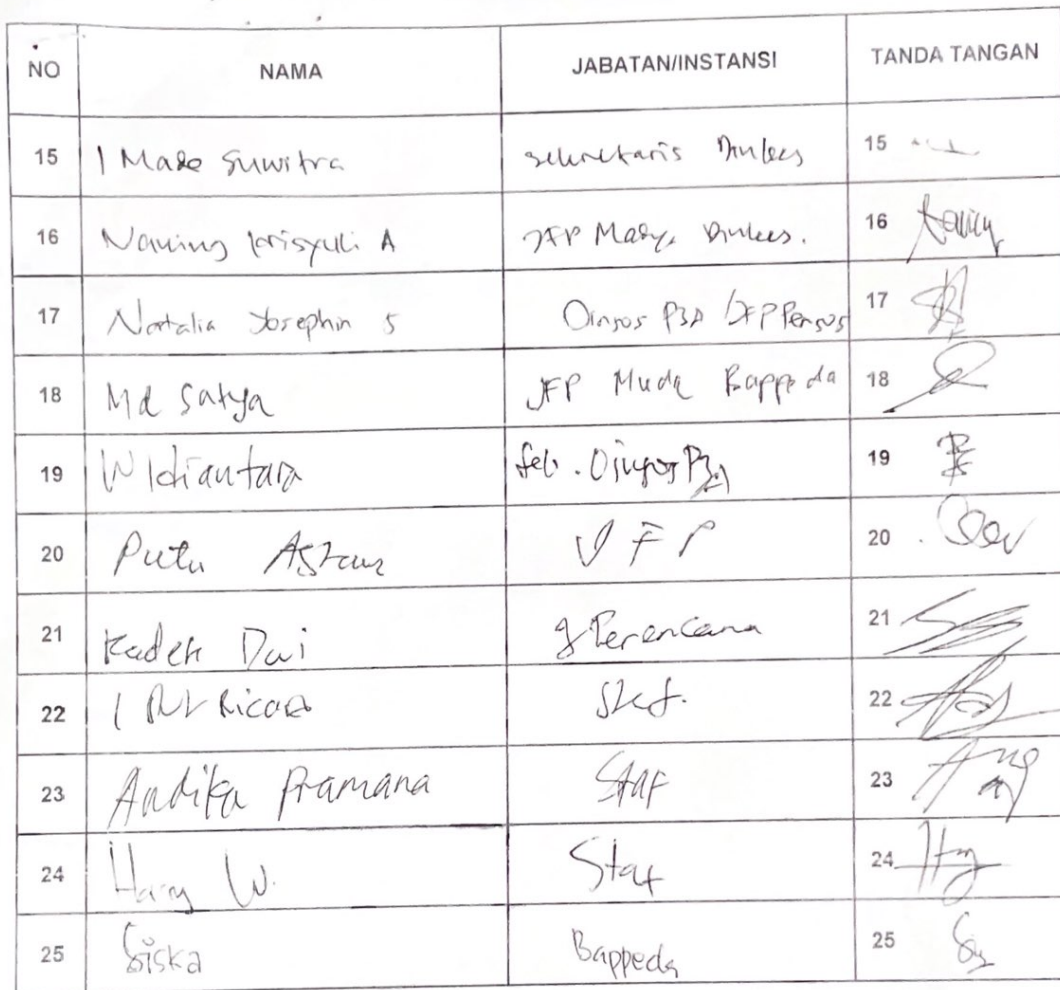 NO NAMA JABATAN/INSTANSI TANDA TANGAN
15 I Made Suwitra sekretaris Dinkes 15
16 Naning krisyuli A JFP Madya Dinkes. 16
17 Natalia Yosephin S Dinsos P3A / JFP Pensos 17
18 Md Satya JFP Muda Bappeda 18
19 Widiantara Dinsos P3A 19
20 Putu JFP 20
21 Kadek Dwi Perencana 21
22 I 22
23 Andika Pramana Staf 23
24 W. Staf 24
25 Siska Bappeda 25